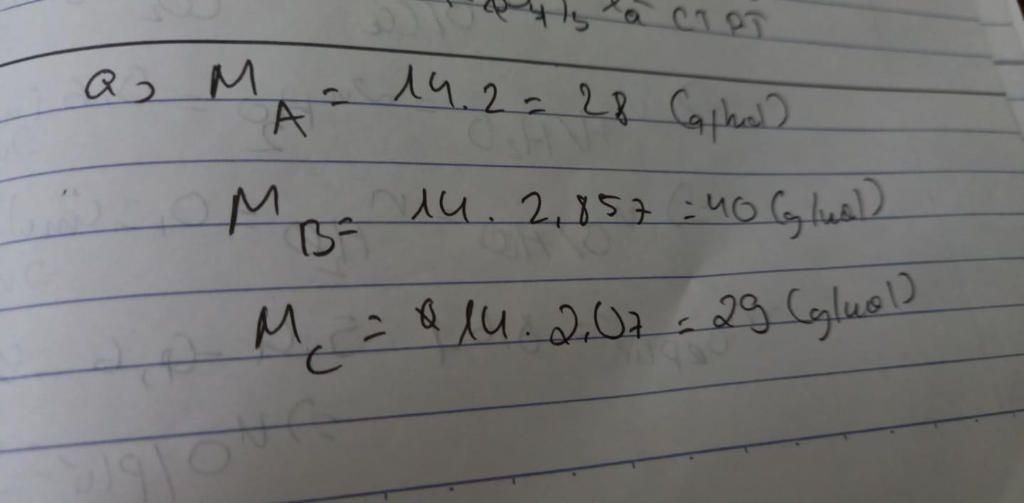 và CTPT
a, M A = 14.2 = 28 (g/mol)
M B = 14 . 2,857 = 40 (g/mol)
M C = 14 . 2,07 = 29 (g/mol)